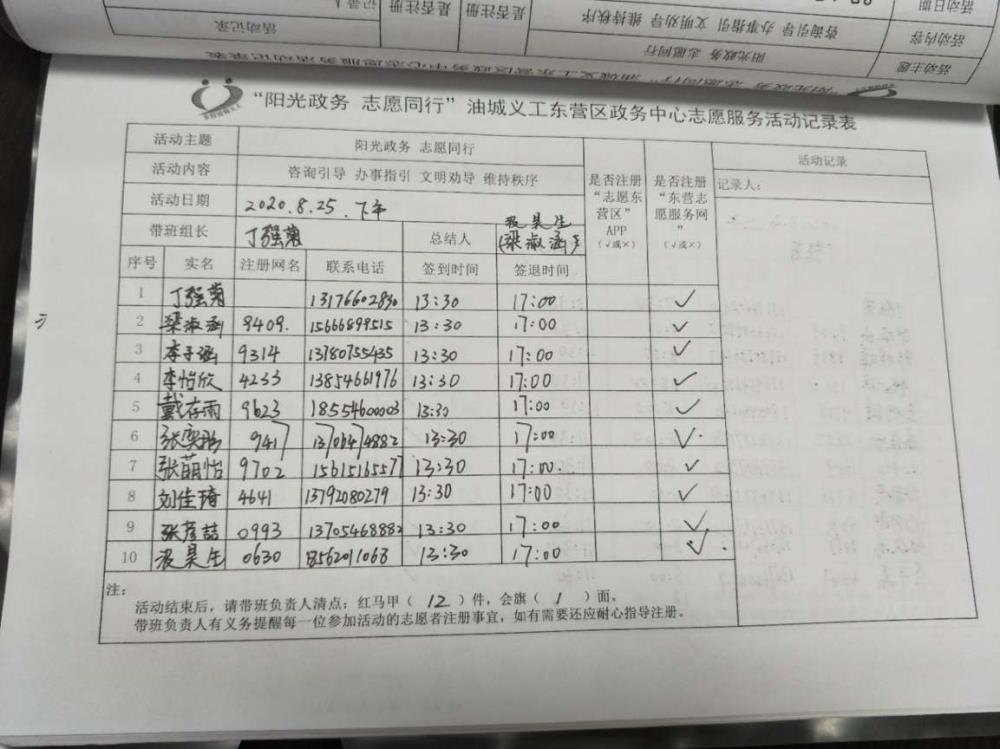 “阳光政务 志愿同行”油城义工东营区政务中心志愿服务活动记录表
活动主题 阳光政务 志愿同行 是否注册“志愿东营区”APP(√或×) 是否注册“东营志愿服务网”(√或×) 活动记录
活动内容 咨询引导 办事指引 文明劝导 维持秩序 记录人:
活动日期 2020.8.25.下午
带班组长 丁强菊 总结人 昊生(梁淑涵)
序号 实名 注册网名 联系电话 签到时间 签退时间
1 丁强菊 13176602830 13:30 17:00 ✓
2 梁淑涵 8409. 15666899515 13:30 17:00 ✓
3 李子涵 9314 13780755435 13:30 17:00 ✓
4 李怡欣 4233 13854661976 13:30 17:00 ✓
5 戴存雨 9623 18554600003 13:30 17:00 ✓
6 张奕 9417 13706474882 13:30 17:00 ✓
7 张萌怡 9702 15615165577 13:30 17:00. ✓
8 刘佳琦 4641 13792080279 13:30 17:00 ✓
9 张彦喆 0993 13705468882 13:30 17:00 ✓
10 昊生 0630 18562011068 13:30 17:00 ✓
注:
活动结束后,请带班负责人清点:红马甲(12)件,会旗(1)面。
带班负责人有义务提醒每一位参加活动的志愿者注册事宜,如有需要还应耐心指导注册。